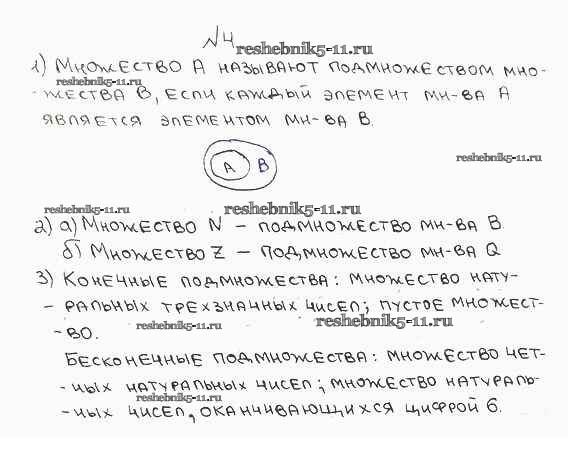 №4
reshebnik5-11.ru
1) Множество А называют подмножеством мно-
reshebnik5-11.ru
- жества В, если каждый элемент мн-ва А
является элементом мн-ва В.
reshebnik5-11.ru
А В
reshebnik5-11.ru
reshebnik5-11.ru
2) а) Множество N – подмножество мн-ва В
б) Множество Z – подмножество мн-ва Q
3) Конечные подмножества: множество нату-
- ральных трехзначных чисел; пустое множест-
reshebnik5-11.ru
reshebnik5-11.ru
- во.
Бесконечные подмножества: множество чет-
- ных натуральных чисел; множество натураль-
reshebnik5-11.ru
- ных чисел, оканчивающихся цифрой 6.